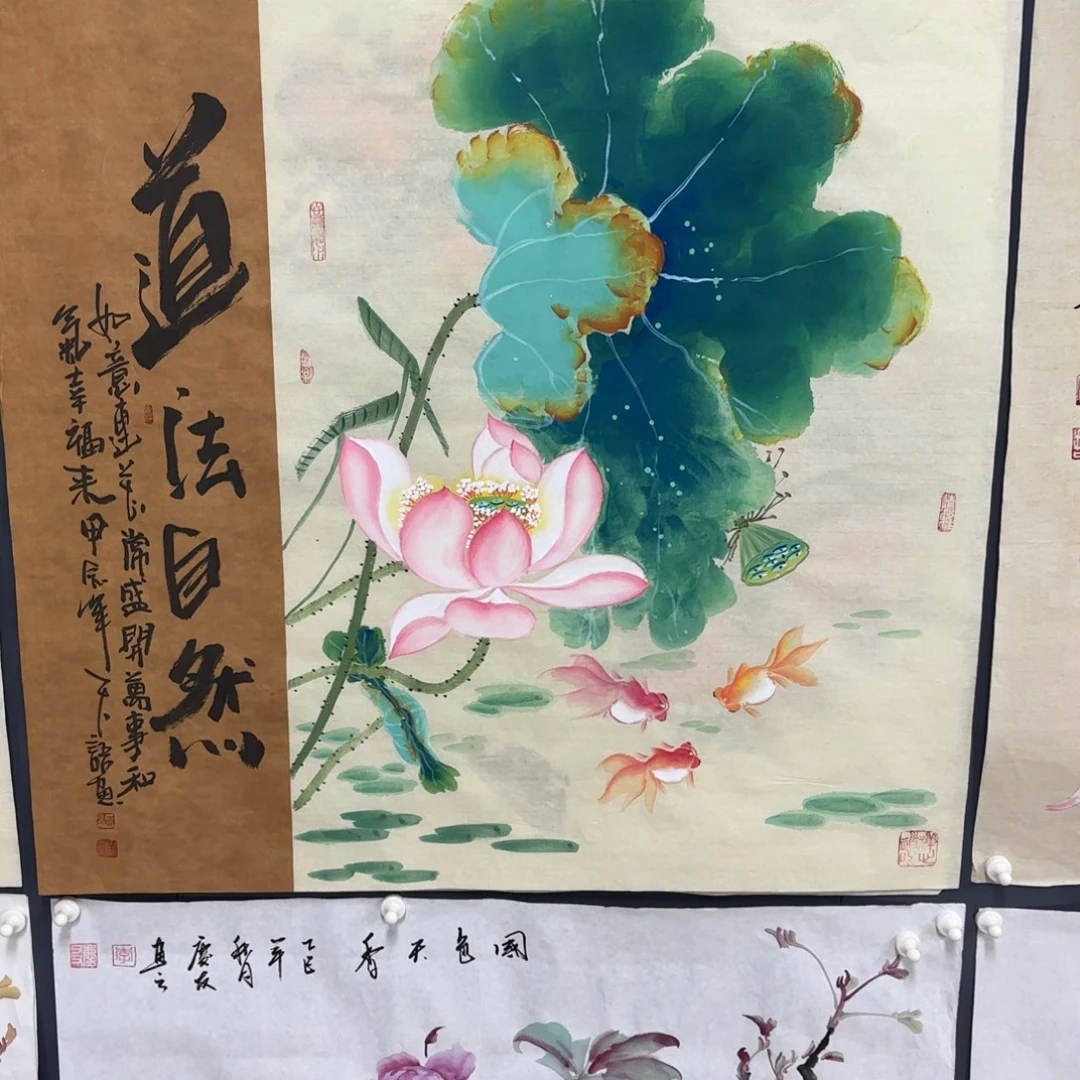 道法自然
如意蓮花常盛開萬事和
氣幸福来甲辰年
國色天香
乙巳年
秋月
慶友